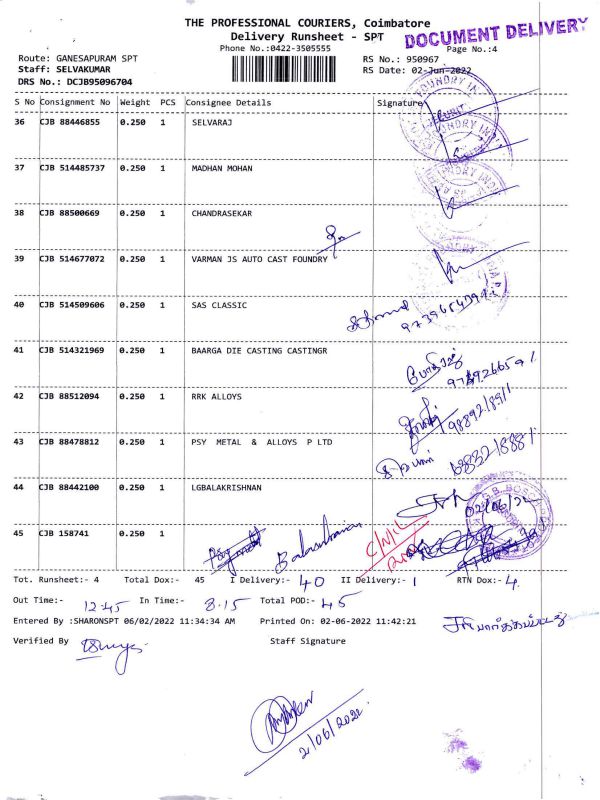 THE PROFESSIONAL COURIERS, Coimbatore
Delivery Runsheet - SPT
DOCUMENT DELIVERY
Phone No.:0422-3505555
Page No.:4
Route: GANESAPURAM SPT
RS No.: 950967
Staff: SELVAKUMAR
RS Date: 02-Jun-2022
DRS No.: DCJB95096704
S No Consignment No Weight PCS Consignee Details Signature
36 CJB 88446855 0.250 1 SELVARAJ
37 CJB 514485737 0.250 1 MADHAN MOHAN
38 CJB 88500669 0.250 1 CHANDRASEKAR
39 CJB 514677072 0.250 1 VARMAN JS AUTO CAST FOUNDRY
40 CJB 514509606 0.250 1 SAS CLASSIC
41 CJB 514321969 0.250 1 BAARGA DIE CASTING CASTINGR
42 CJB 88512094 0.250 1 RRK ALLOYS
43 CJB 88478812 0.250 1 PSY METAL & ALLOYS P LTD
44 CJB 88442100 0.250 1 LGBALAKRISHNAN
02/06/22
45 CJB 158741 0.250 1
Tot. Runsheet:- 4 Total Dox:- 45 I Delivery:- 40 II Delivery:- 1 RTN Dox:- 4
Out Time:- 12.45 In Time:- 8.15 Total POD:- 45
Entered By :SHARONSPT 06/02/2022 11:34:34 AM Printed On: 02-06-2022 11:42:21
Verified By Staff Signature
2/06/2022